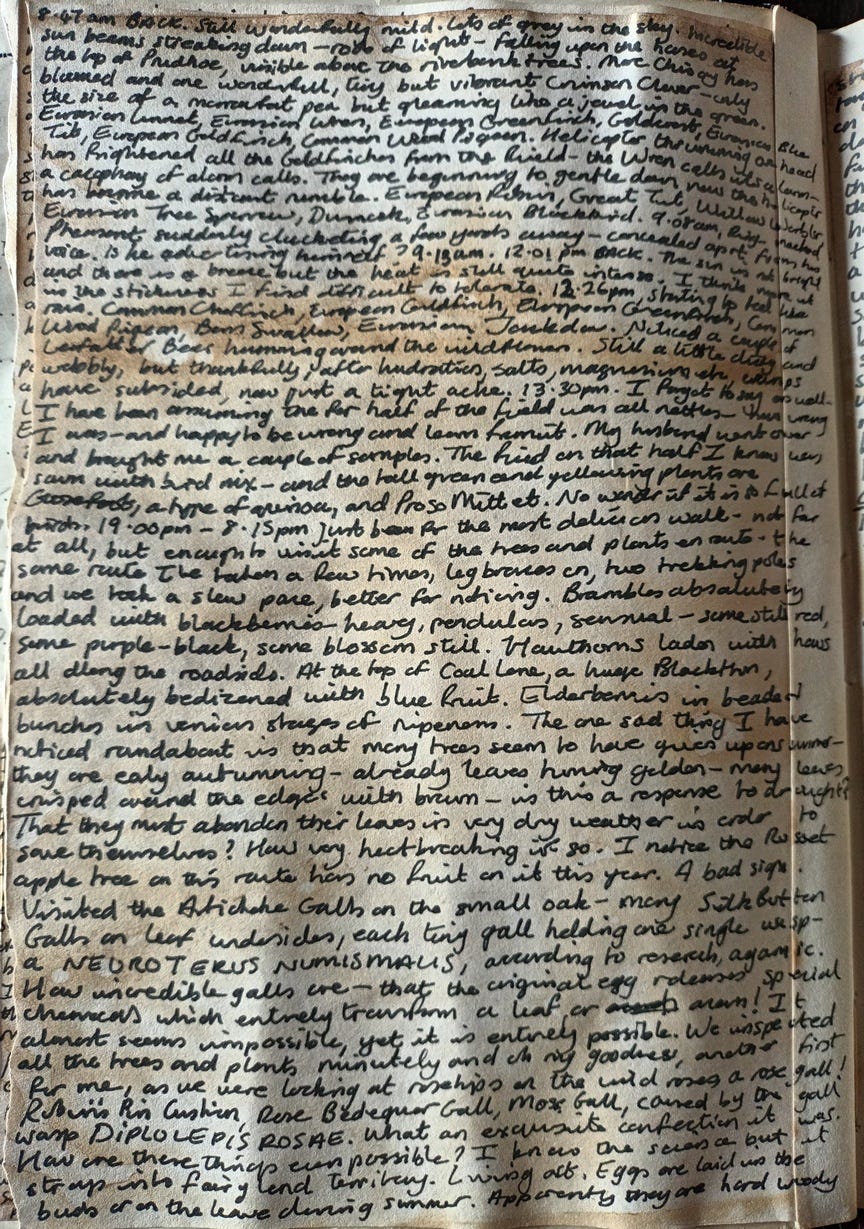 8.47am BACK. Still wonderfully mild. Lots of grey in the sky. Incredible
sun beams streaking down – rods of light – falling upon the houses at
the top of Prudhoe, visible above the riverbank trees. More Chicory has
bloomed and one wonderful, tiny but vibrant Crimson Clover – only
the size of a marrowfat pea but gleaming like a jewel in the green.
Eurasian Linnet, Eurasian Wren, European Greenfinch, Goldcrest, Eurasian Blue
Tit, European Goldfinch, Common Wood Pigeon. Helicopter thrumming overhead
has frightened all the Goldfinches from the field – the Wren calls its alarm –
a cacophony of alarm calls. They are beginning to gentle down now the helicopter
has become a distant rumble. European Robin, Great Tit, Willow Warbler
Eurasian Tree Sparrow, Dunnock, Eurasian Blackbird. 9.08am, Ring-necked
Pheasant suddenly clucketing a few yards away – concealed apart from his
voice. Is he advertising himself? 9.13am. 12.01pm BACK. The sun is not bright
and there is a breeze but the heat is still quite intense. I think more it
is the stickiness I find difficult to tolerate. 12.26pm, starting to feel like
rain. Common Chaffinch, European Goldfinch, European Greenfinch, Common
Wood Pigeon, Barn Swallow, Eurasian Jackdaw. Noticed a couple of
Leafcutter Bees humming around the wildflowers. Still a little dizzy and
wobbly, but thankfully, after hydration, salts, magnesium etc, cramps
have subsided, now just a tight ache. 13.30pm. I forgot to say as well –
I have been assuming the far half of the field was all nettles – how wrong
I was – and happy to be wrong and learn from it. My husband went over
and brought me a couple of samples. The field on that half I know was
sown with bird mix – and the tall green and yellowing plants are
Goosefoot, a type of quinoa, and Proso Millet. No wonder if it is so full of
birds. 19.00pm – 8.15pm Just been for the most delicious walk – not far
at all, but enough to visit some of the trees and plants en route – the
same route I've taken a few times, leg braces on, two trekking poles
and we took a slow pace, better for noticing. Brambles absolutely
loaded with blackberries – heavy, pendulous, sensual – some still red,
some purple-black, some blossom still. Hawthorns laden with haws
all along the roadside. At the top of Coal Lane, a huge Blackthorn,
absolutely bedizened with blue fruit. Elderberries in beaded
bunches in various stages of ripeness. The one sad thing I have
noticed roundabout is that many trees seem to have given up on summer –
they are early autumning – already leaves turning golden – many leaves
crisped around the edges with brown – is this a response to drought?
That they must abandon their leaves in very dry weather in order to
save themselves? How very heartbreaking if so. I notice the Russet
apple tree on this route has no fruit on it this year. A bad sign.
Visited the Artichoke Galls on the small oak – many Silk Button
Galls on leaf undersides, each tiny gall holding one single wasp –
a NEUROTERUS NUMISMALIS, according to research, agamic.
How incredible galls are – that the original egg releases special
chemicals which entirely transform a leaf or acorn! It
almost seems impossible, yet it is entirely possible. We inspected
all the trees and plants minutely and oh my goodness, another first
for me, as we were looking at rosehips on the wild roses a rose gall!
Robin's Pin Cushion, Rose Bedeguar Gall, Moss Gall, caused by the gall
wasp DIPLOLEPIS ROSAE. What an exquisite confection it was.
How are these things even possible? I know the science but it
strays into fairy land territory. Living art. Eggs are laid in the
buds or on the leaves during summer. Apparently they are hard woody